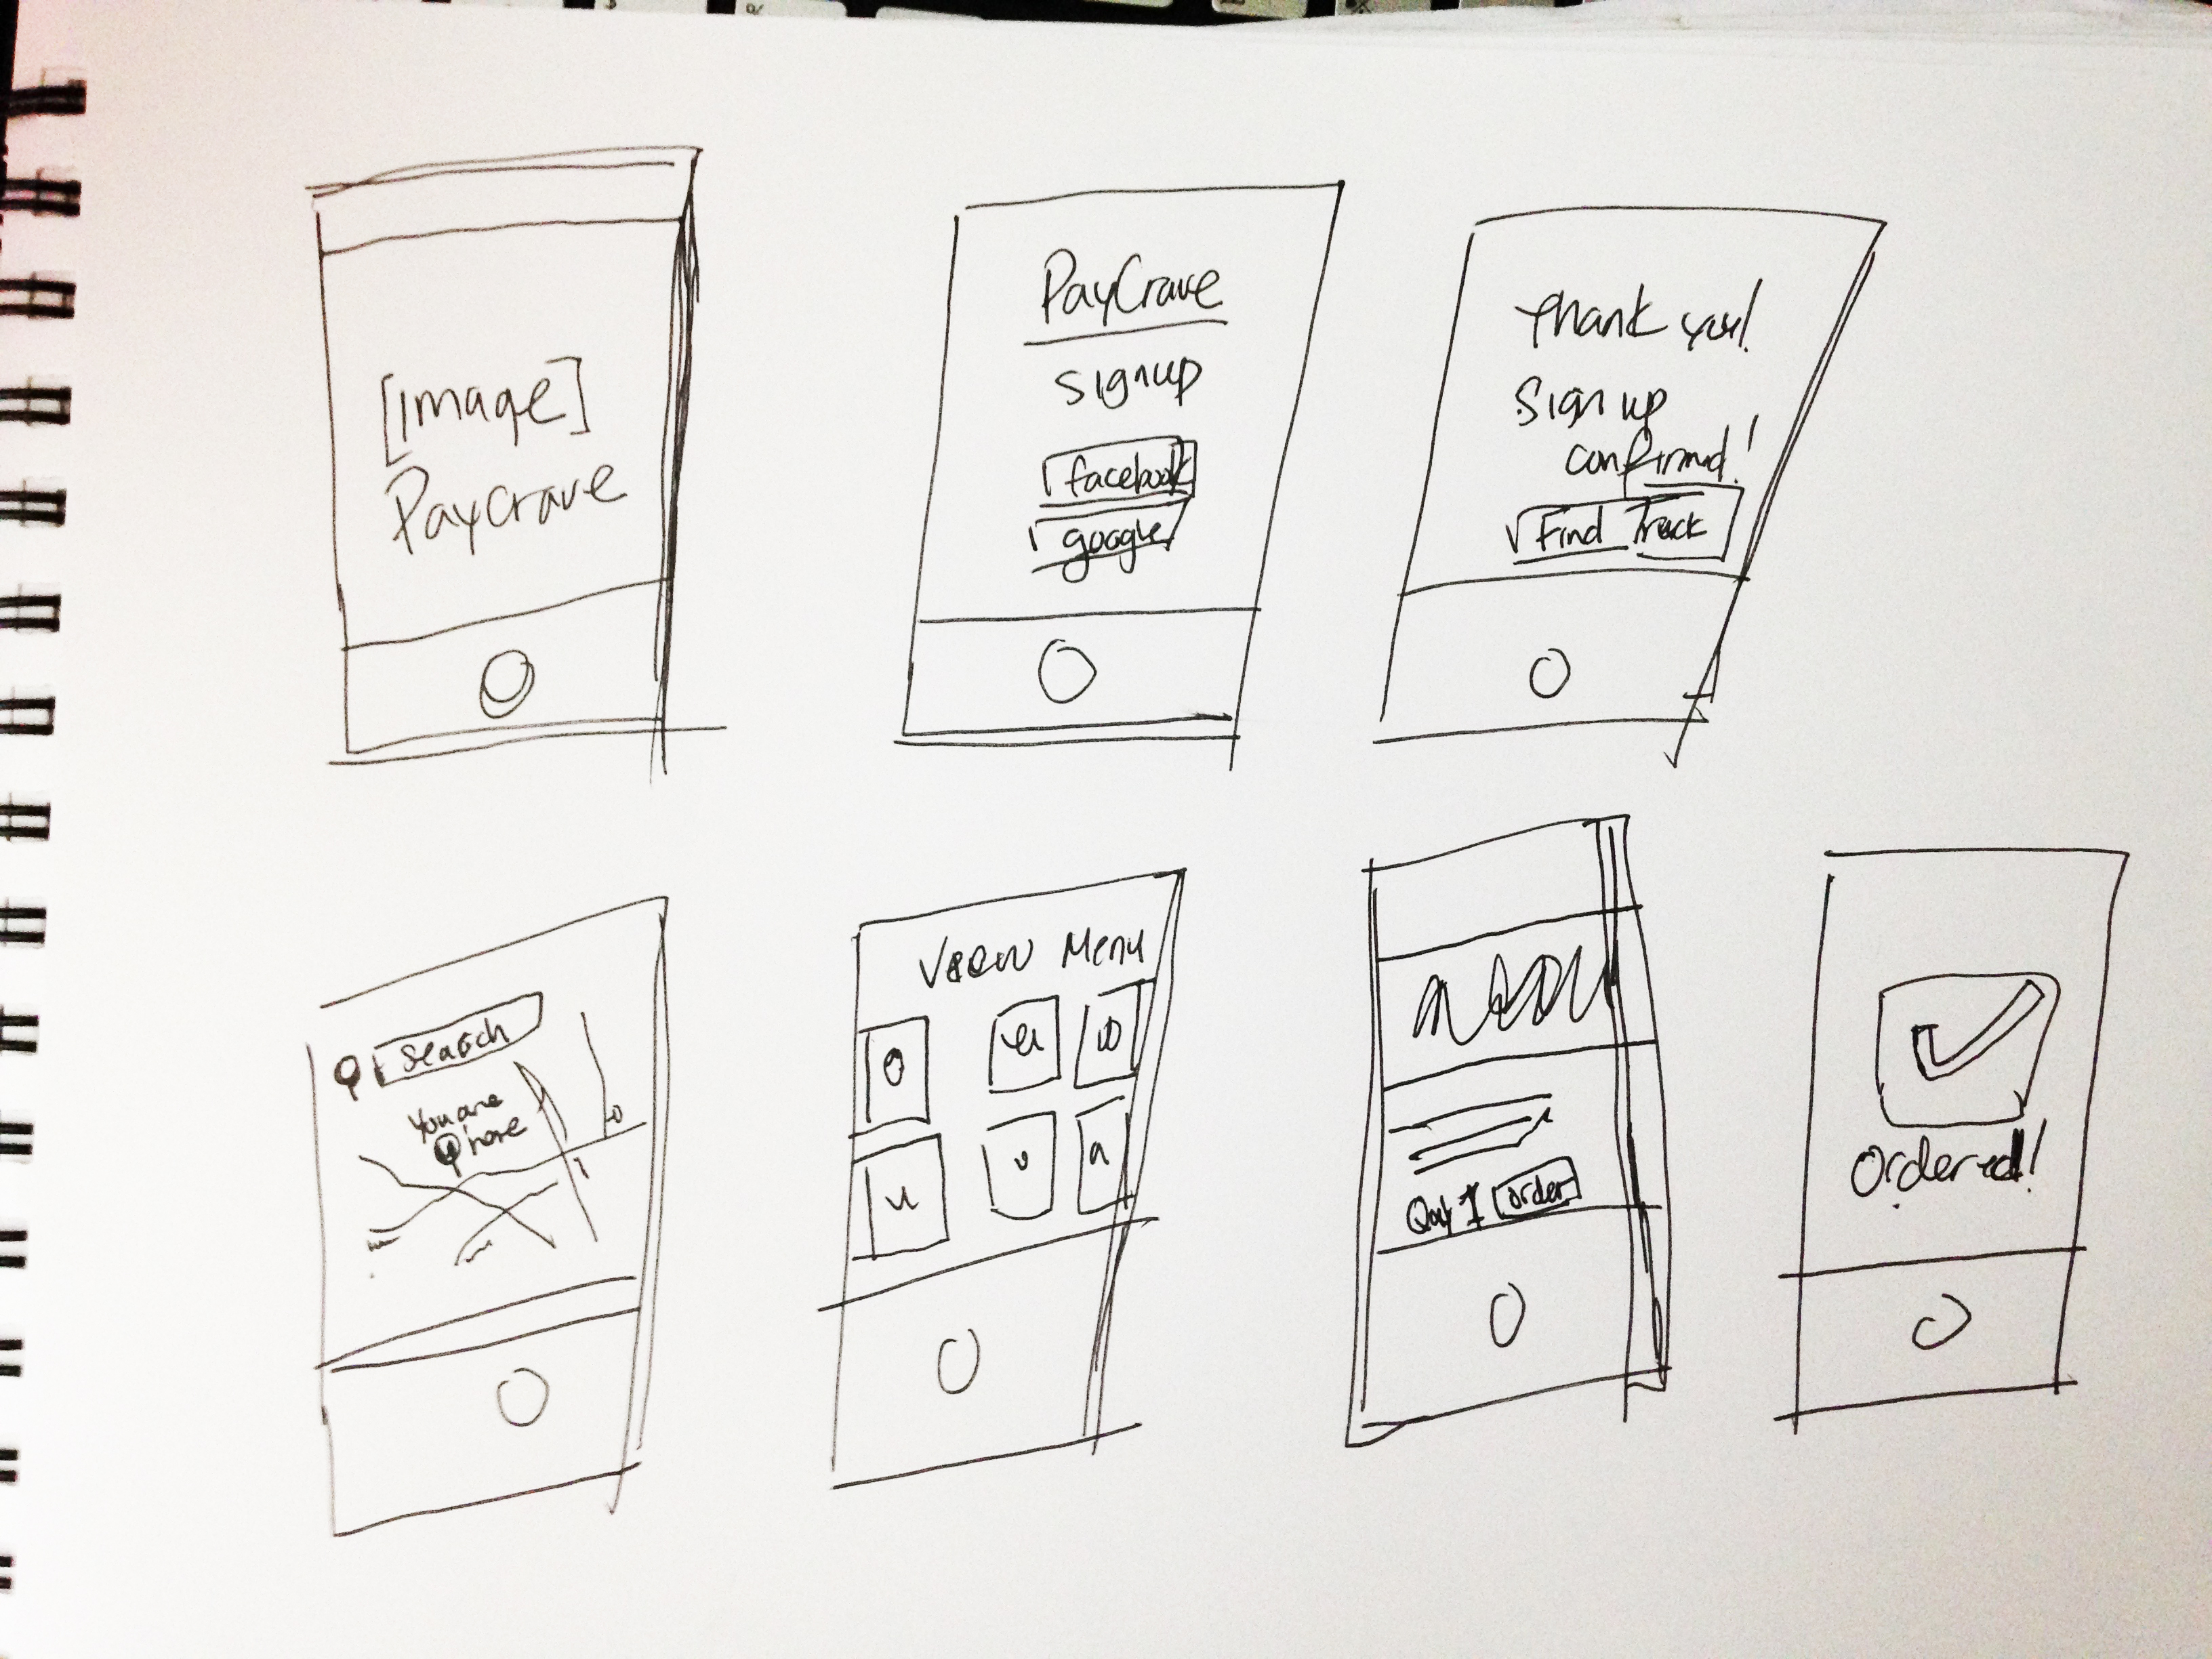 [image]
Paycrave
PayCrave
signup
facebook
google
Thank you!
Sign up
confirmed!
Find Truck
search
You are
here
View Menu
Qty 1 order
Ordered!